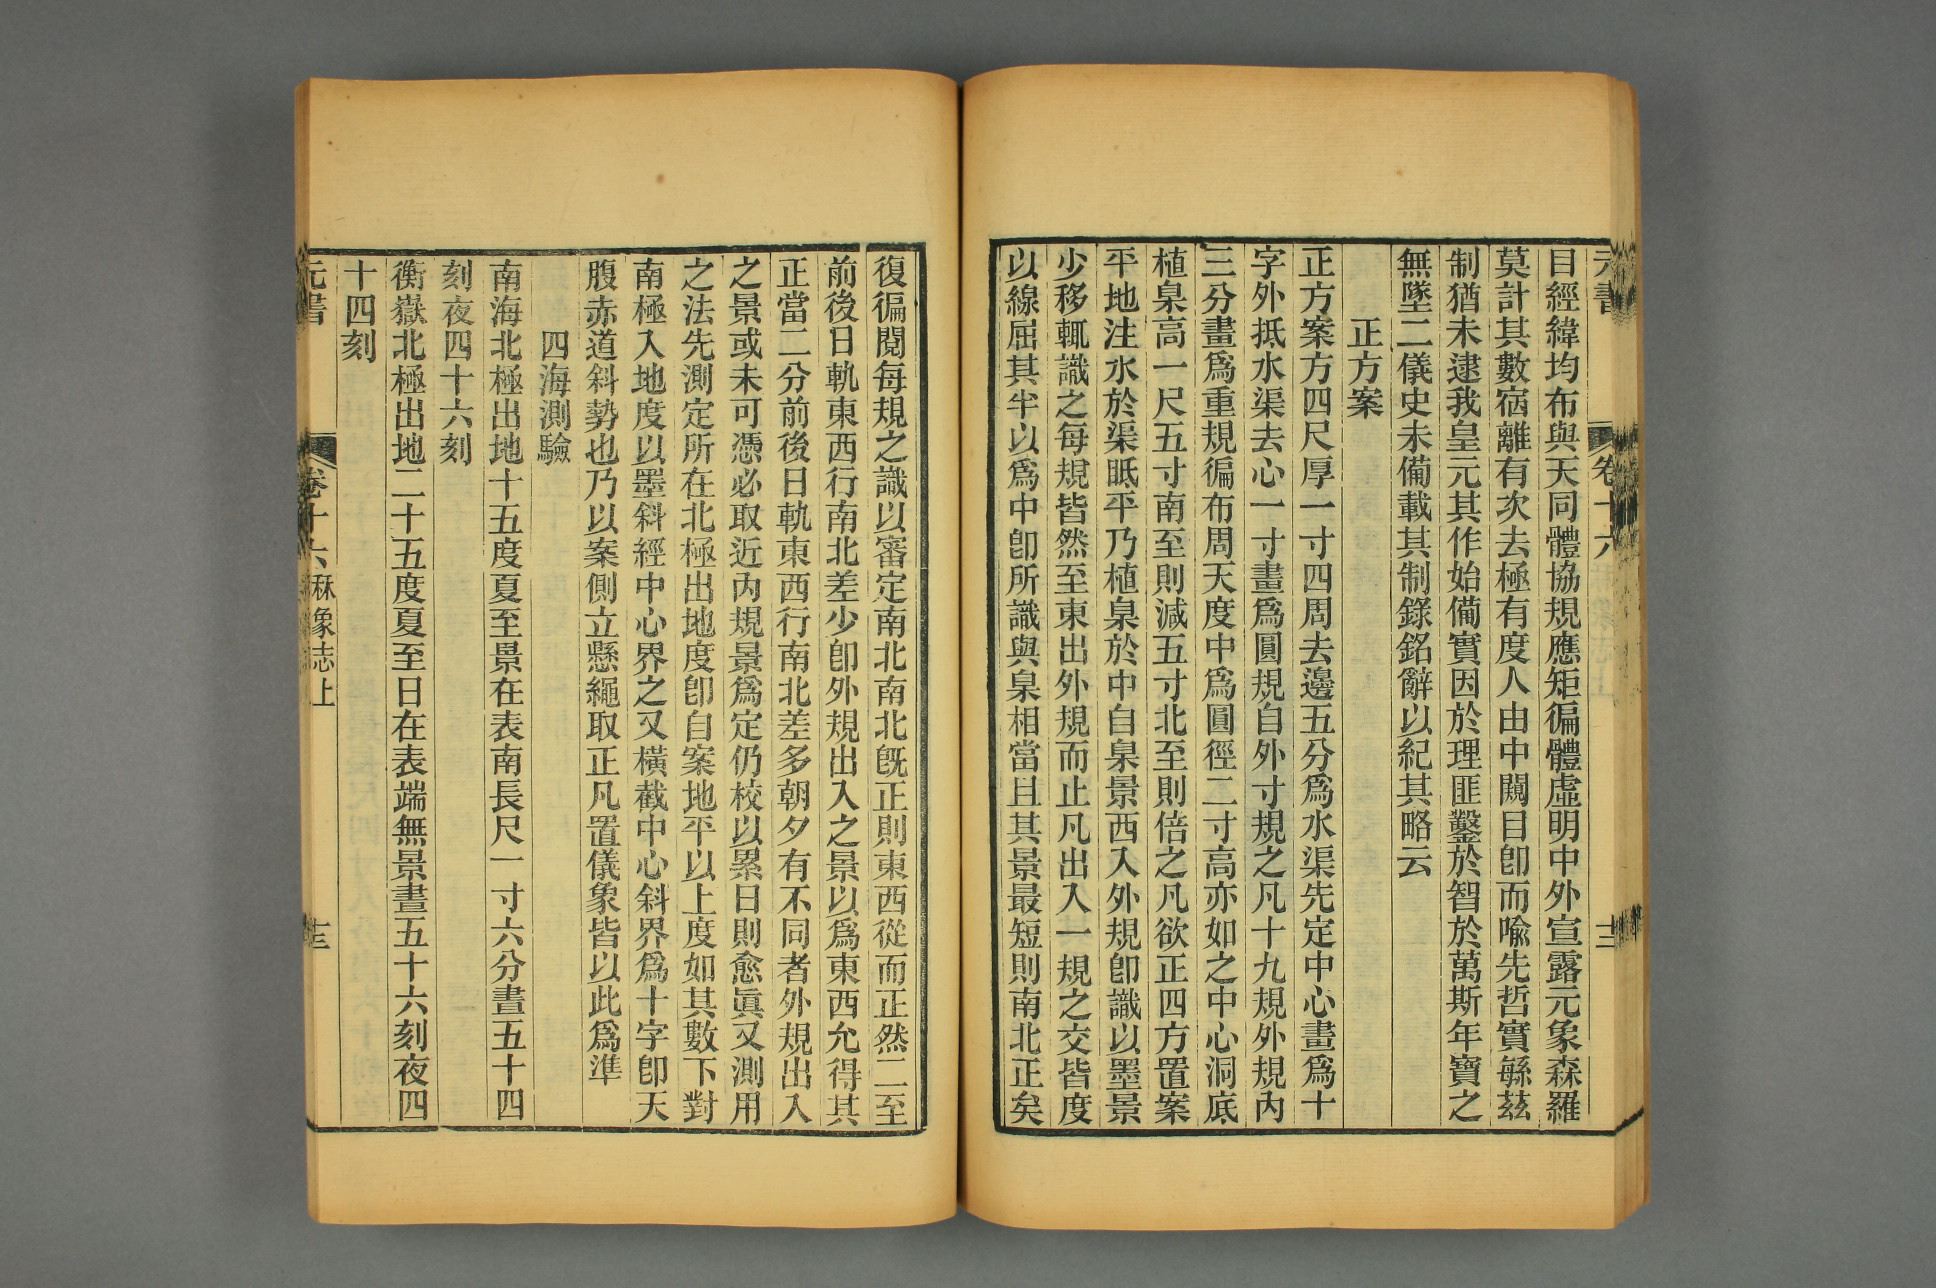 元書
卷十六
十二
目經緯均布與天同體協規應矩徧體虛明中外宣露元象森羅
莫計其數宿離有次去極有度人由中闚目卽而喻先哲實繇茲
制猶未逮我皇元其作始備實因於理匪鑿於智於萬斯年寶之
無墜二儀史未備載其制錄銘辭以紀其略云
正方案
正方案方四尺厚一寸四周去邊五分爲水渠先定中心畫爲十
字外抵水渠去心一寸畫爲圓規自外寸規之凡十九規外規內
三分畫爲重規徧布周天度中爲圓徑二寸高亦如之中心洞底
植臬高一尺五寸南至則減五寸北至則倍之凡欲正四方置案
平地注水於渠眡平乃植臬於中自臬景西入外規卽識以墨景
少移輒識之每規皆然至東出外規而止凡出入一規之交皆度
以線屈其半以爲中卽所識與臬相當且其景最短則南北正矣
復徧閱每規之識以審定南北南北旣正則東西從而正然二至
前後日軌東西行南北差少卽外規出入之景以爲東西允得其
正當二分前後日軌東西行南北差多朝夕有不同者外規出入
之景或未可憑必取近內規景爲定仍校以累日則愈眞又測用
之法先測定所在北極出地度卽自案地平以上度如其數下對
南極入地度以墨斜經中心界之又橫截中心斜界爲十字卽天
腹赤道斜勢也乃以案側立懸繩取正凡置儀象皆以此爲準
四海測驗
南海北極出地十五度夏至景在表南長尺一寸六分晝五十四
刻夜四十六刻
衡嶽北極出地二十五度夏至日在表端無景晝五十六刻夜四
十四刻
元書
卷十六 秝象志上
十三